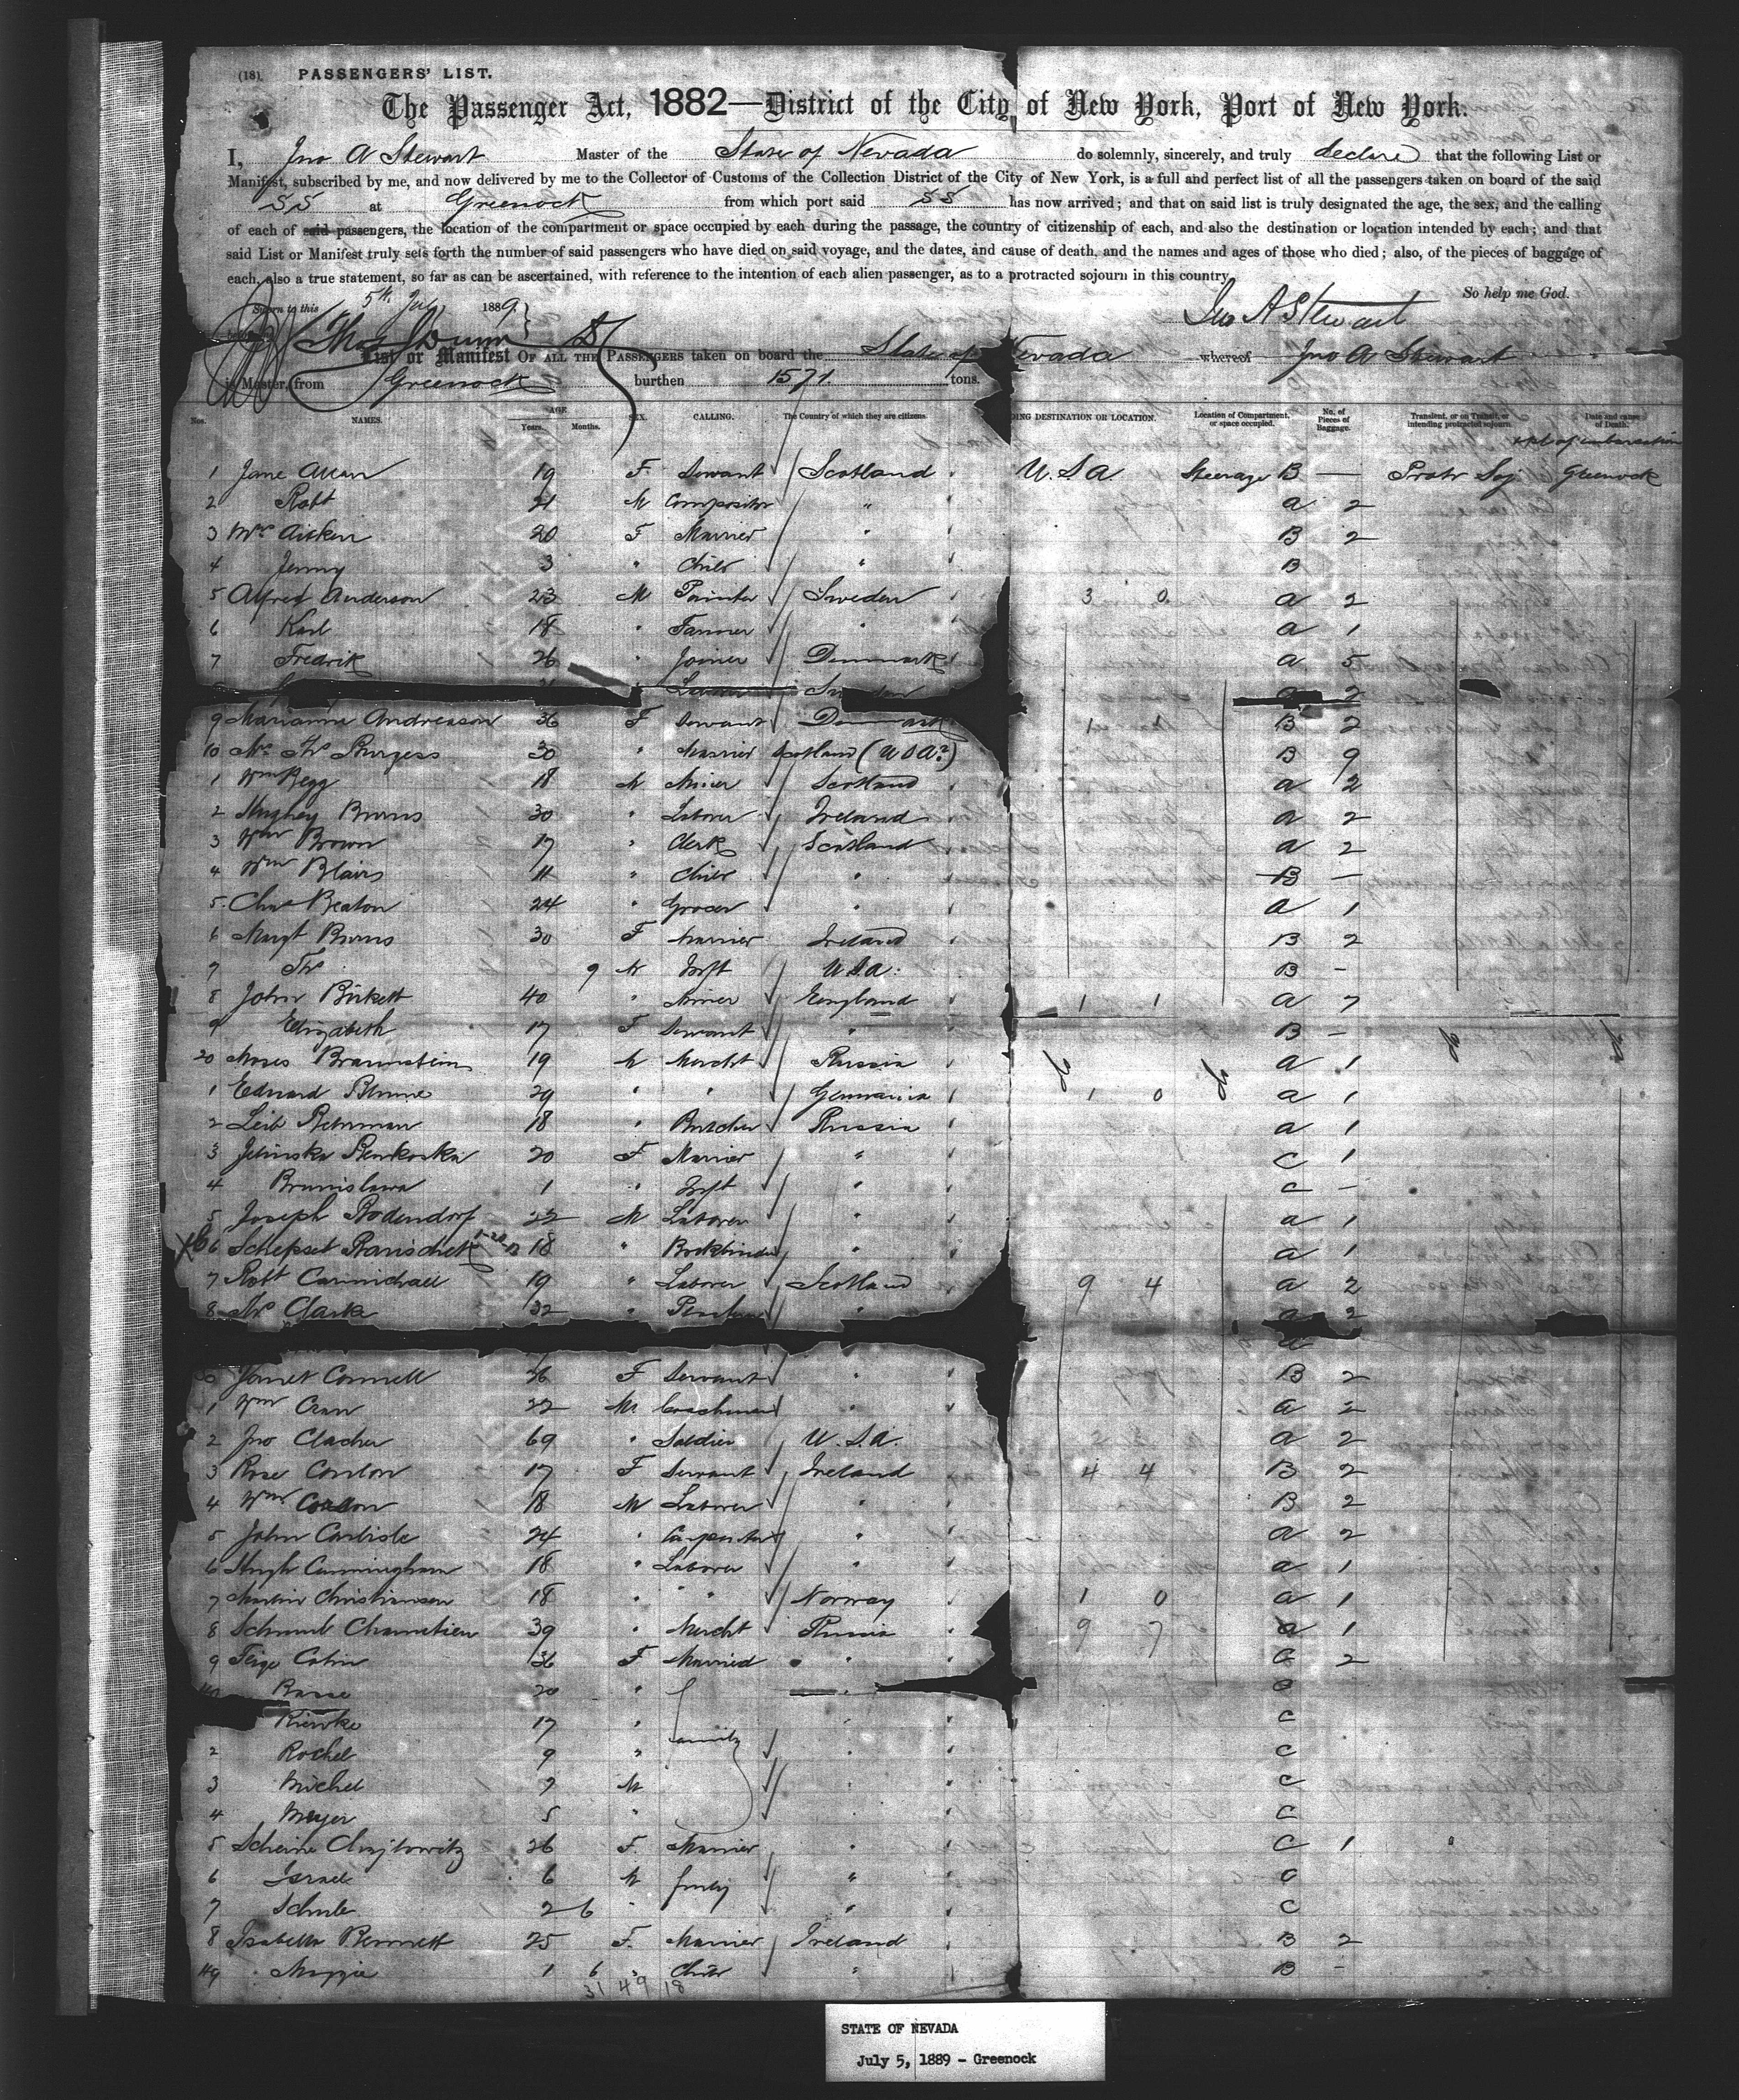 (18). PASSENGERS' LIST.
The Passenger Act, 1882—District of the City of New York, Port of New York.
I, Jno A Stewart Master of the State of Nevada do solemnly, sincerely, and truly declare that the following List or
Manifest, subscribed by me, and now delivered by me to the Collector of Customs of the Collection District of the City of New York, is a full and perfect list of all the passengers taken on board of the said
SS at Greenock from which port said SS has now arrived; and that on said list is truly designated the age, the sex, and the calling
of each of said passengers, the location of the compartment or space occupied by each during the passage, the country of citizenship of each, and also the destination or location intended by each; and that
said List or Manifest truly sets forth the number of said passengers who have died on said voyage, and the dates, and cause of death, and the names and ages of those who died; also, of the pieces of baggage of
each, also a true statement, so far as can be ascertained, with reference to the intention of each alien passenger, as to a protracted sojourn in this country.
So help me God.
Sworn to this 5th July 1889
Jno A Stewart
Thos Dunn
List or Manifest OF ALL THE PASSENGERS taken on board the State of Nevada whereof Jno A Stewart
is Master, from Greenock burthen 1571 tons.
Nos. NAMES. AGE. Years. Months. SEX. CALLING. The Country of which they are citizens. DESTINATION OR LOCATION. Location of Compartment, or space occupied. No. of Pieces of Baggage. Transient, or on Transit, or intending protracted sojourn. Date and cause of Death.
1 Jane Allan 19 F. Servant Scotland U.S.A. Steerage B — Protr Soj Greenock
2 Robt 21 M Compositor " a 2
3 Mrs Aitken 20 F Married " B 2
4 Jenny 3 " Child " B
5 Alfred Anderson 23 M Painter Sweden 3 0 a 2
6 Karl 18 " Farmer " a 1
7 Fredrik 26 " Joiner Denmark a 5
a 2
9 Marianne Andreason 36 F Servant Denmark 1 1 B 2
10 Mrs Burgess 30 " Married Scotland (USA?) B 9
1 Wm Begg 18 M Miner Scotland a 2
2 Hughey Burns 30 " Laborer Ireland a 2
3 Wm Brown 17 " Clerk Scotland a 2
4 Wm Blair 11 " Child " B —
5 Chas Beaton 24 " Grocer " a 1
6 Margt Burns 30 F Married Ireland B 2
7 Ths 9 M Inft U.S.A. B -
8 John Birkett 40 " Miner England 1 1 a 7
9 Elizabeth 17 F Servant " B -
20 Moses Braunstein 19 M Mercht Russia a 1
1 Edward 29 " " Germania 1 0 a 1
2 Leib 18 " Butcher Russia a 1
3 20 F Married " C 1
4 Brunislawa 1 " Inft " C -
5 Joseph Bodendorf 22 M Laborer " a 1
6 Schepsel 18 " Bookbinder " a 1
7 Robt Carmichael 19 " Laborer Scotland 9 4 a 2
8 Clark 32 " " a 2
a
30 Janet Connell 26 F Servant " B 2
1 Wm Cran 22 M. Coachman " a 2
2 Jno Clacher 69 " Soldier U.S.A. a 2
3 Rose Conlon 17 F Servant Ireland 4 4 B 2
4 Wm Conlon 18 M Laborer " B 2
5 John Carlisle 24 " Carpenter " a 2
6 Hugh Cunningham 18 " Laborer " a 1
7 Martin Christiansen 18 " " Norway 1 0 a 1
8 39 " Mercht Russia 9 7 a 1
9 Feige Cohn 36 F Married " C 2
40 20 " " C
17 " family " C
2 Rochel 9 " " C
3 Michel 7 M " C
4 Meyer 5 " " C
5 Scheine Chajtowitz 26 F. Married " C 1
6 Israel 6 M family " C
7 2 6 " " C
8 Isabella Bennett 25 F. Married Ireland B 2
49 Maggie 1 6 " Child " B -
31 49 18
STATE OF NEVADA
July 5, 1889 - Greenock